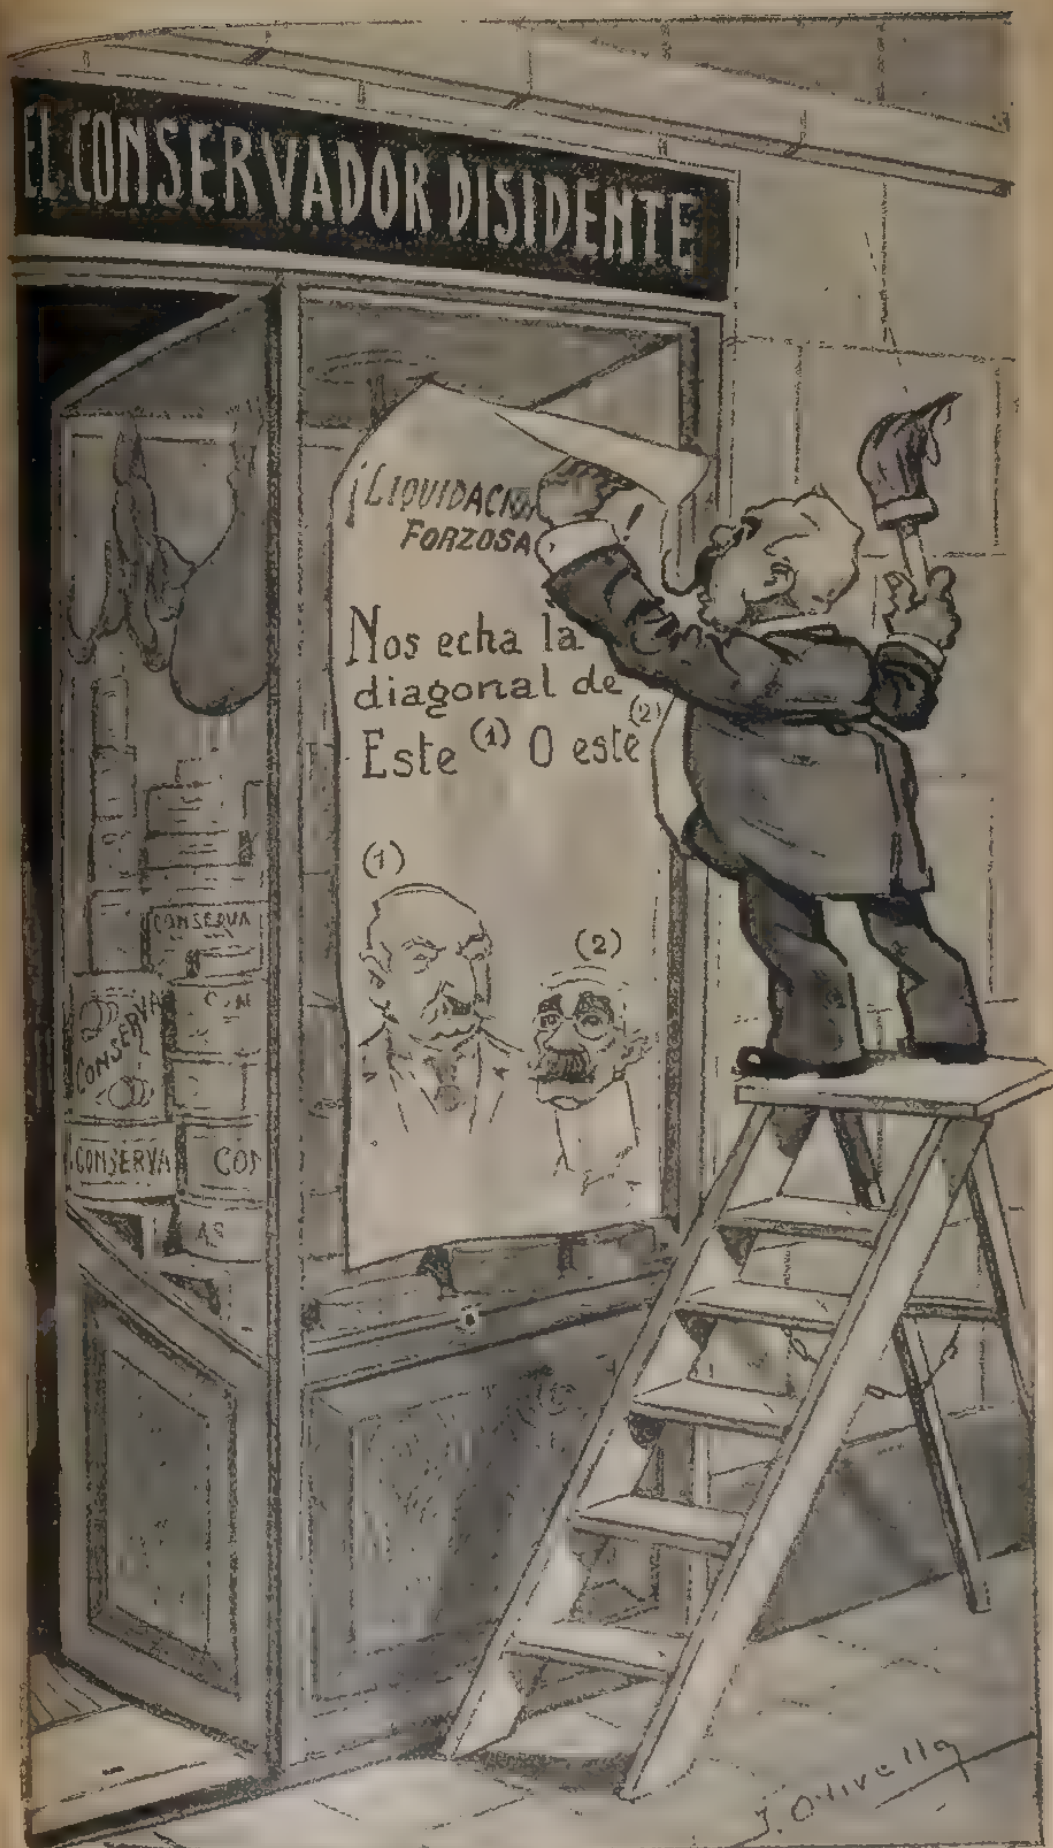 EL CONSERVADOR DISIDENTE
¡LIQUIDACI
FORZOSA!
Nos echa la
diagonal de
Este (1) O este (2)
(1)
(2)
CONSERVA
CONSERVA
CONSERVA
CON
AS